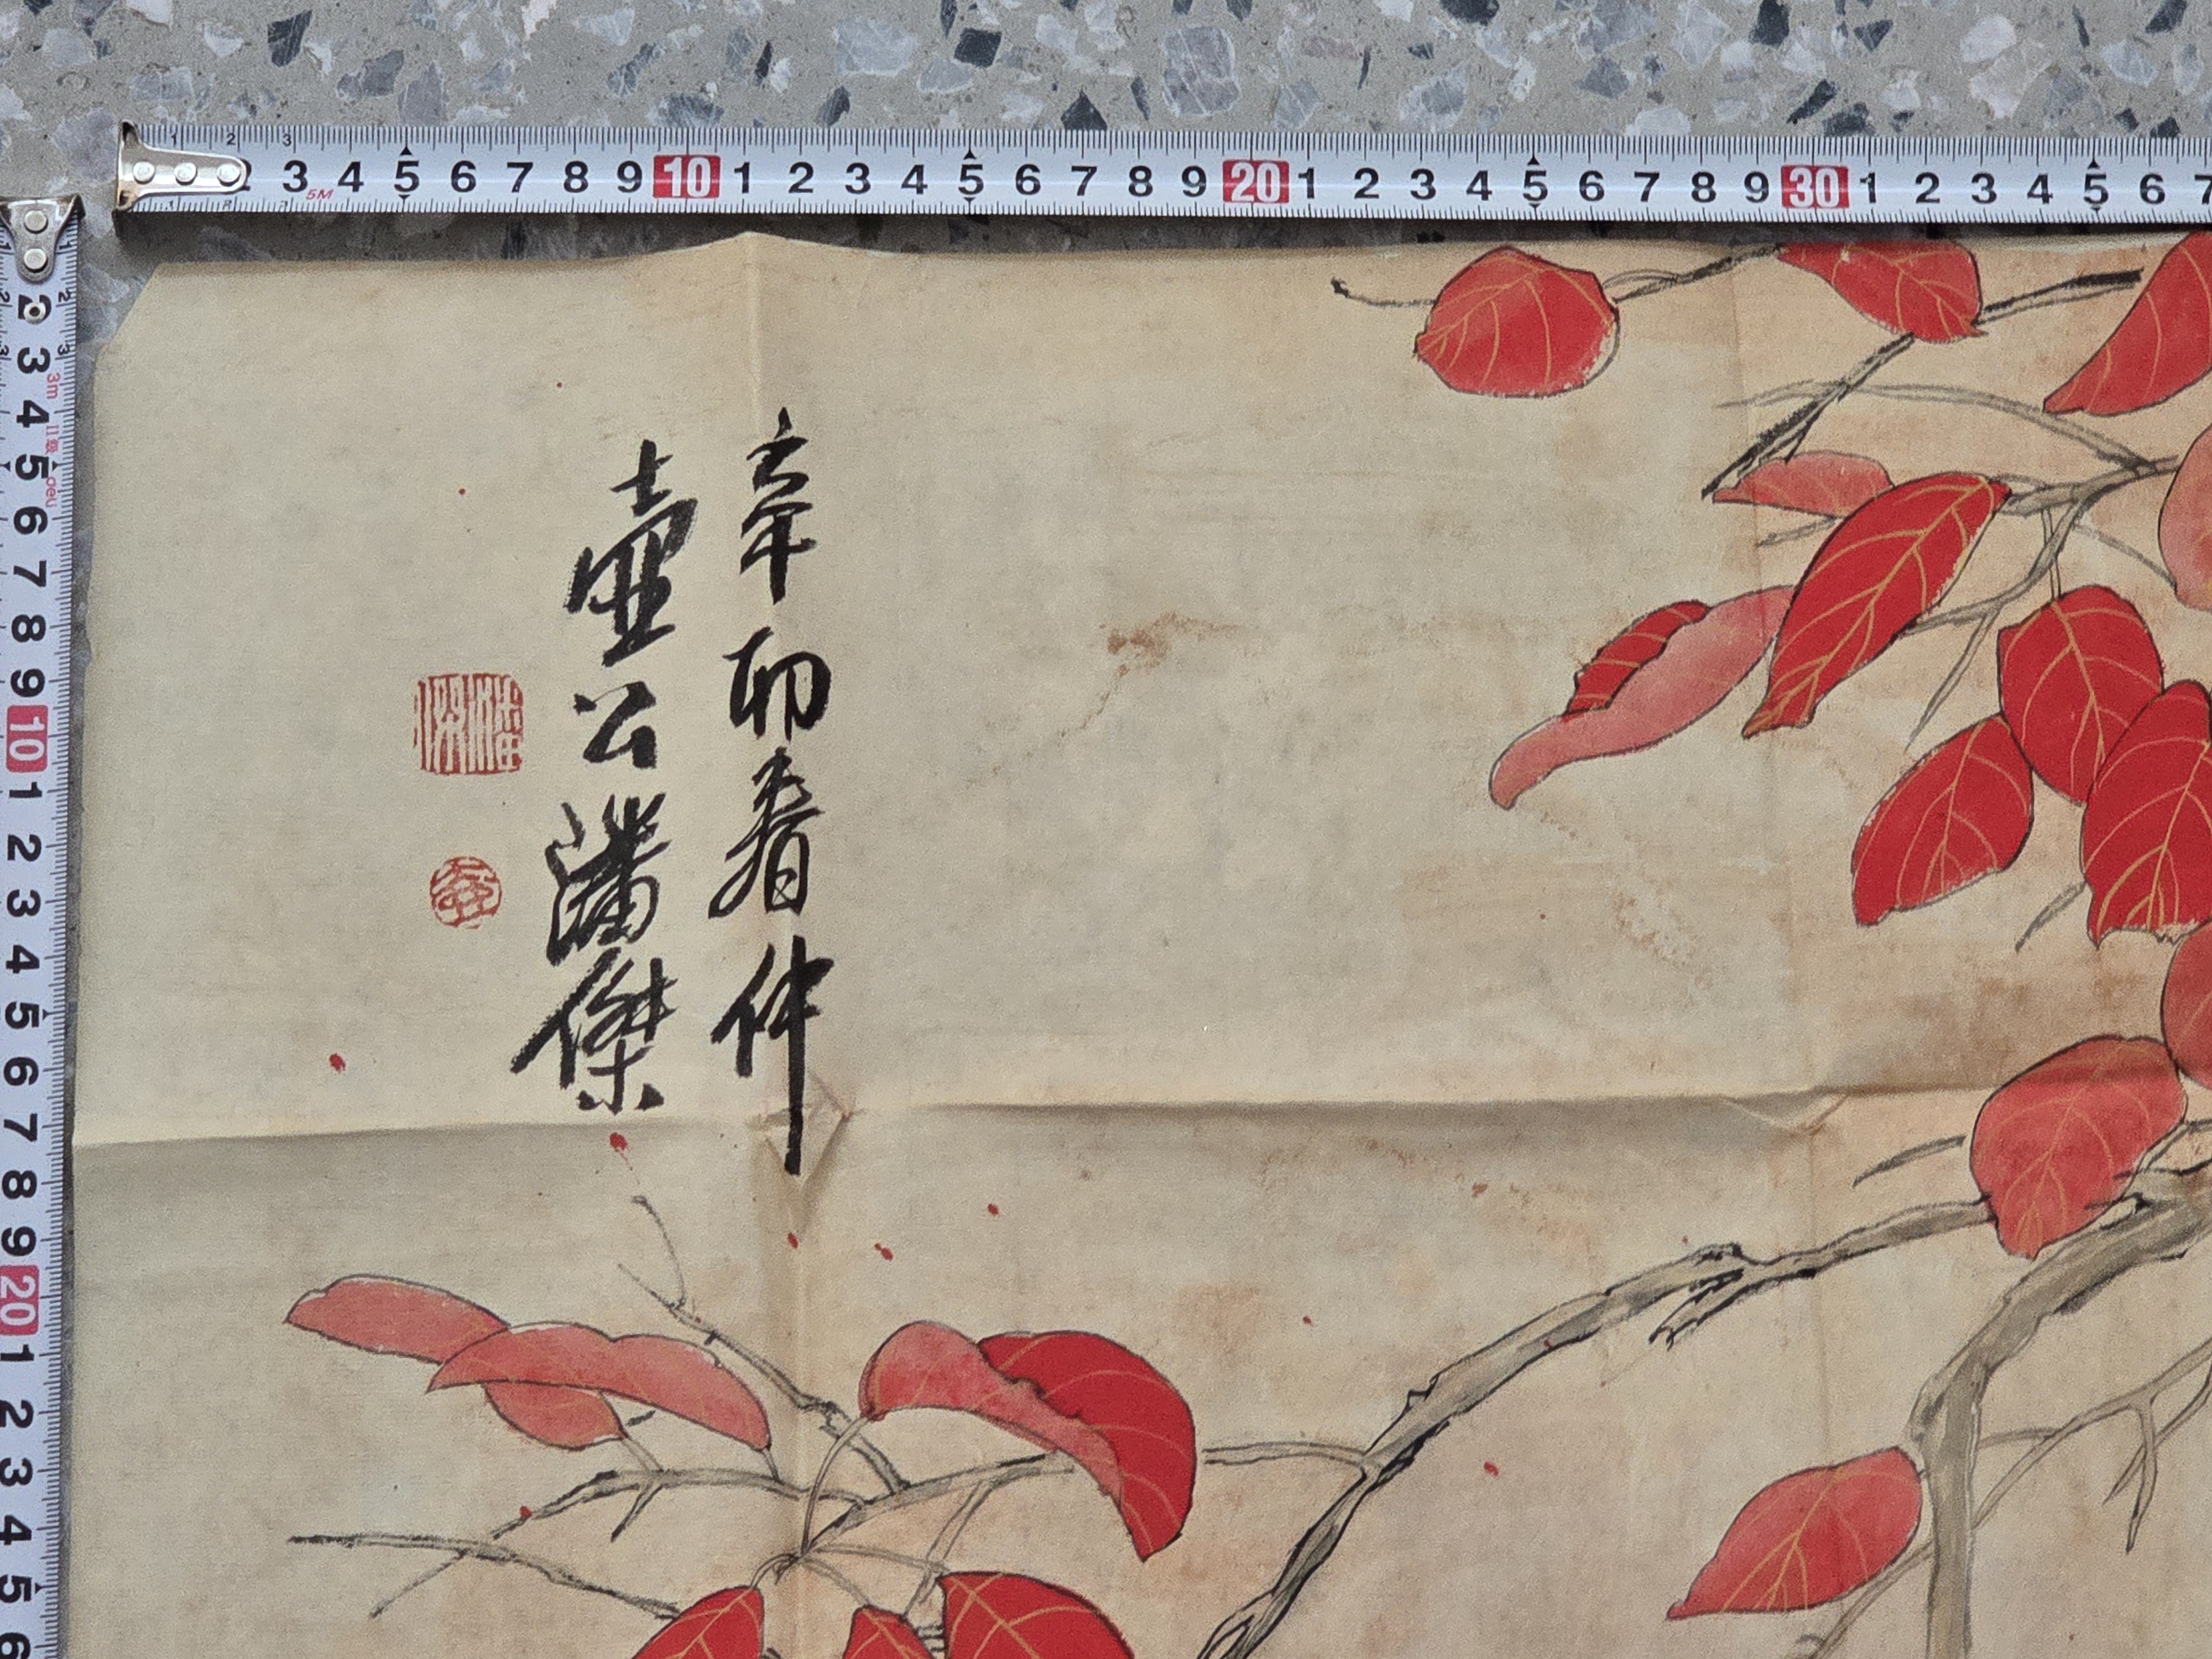 2 3 4 5 6 7 8 9 10 1 2 3 4 5 6 7 8 9 20 1 2 3 4 5 6 7 8 9 30 1 2 3 4 5 6 7
1 2 3
5M
2 3 4 5 6 7 8 9 10 1 2 3 4 5 6 7 8 9 20 1 2 3 4 5 6
3m
辛卯春仲
壷公潘傑